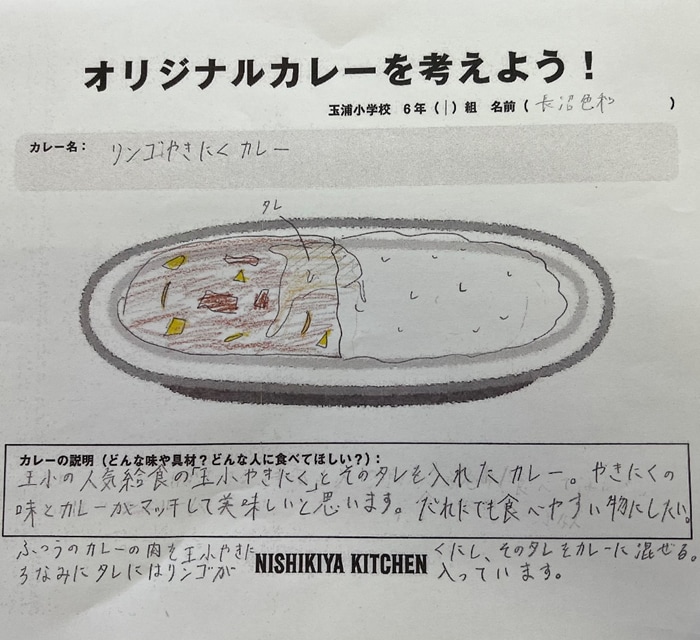 オリジナルカレーを考えよう!
玉浦小学校 6年(1)組 名前( 長沼色和 )
カレー名: リンゴやきにくカレー
タレ
カレーの説明(どんな味や具材?どんな人に食べてほしい?):
玉小の人気給食の「玉小やきにく」とそのタレを入れたカレー。やきにくの
味とカレーがマッチして美味しいと思います。だれにでも食べやすい物にしたい。
ふつうのカレーの肉を玉小やきにくにし、そのタレをカレーに混ぜる。
ちなみにタレにはリンゴが入っています。
NISHIKIYA KITCHEN